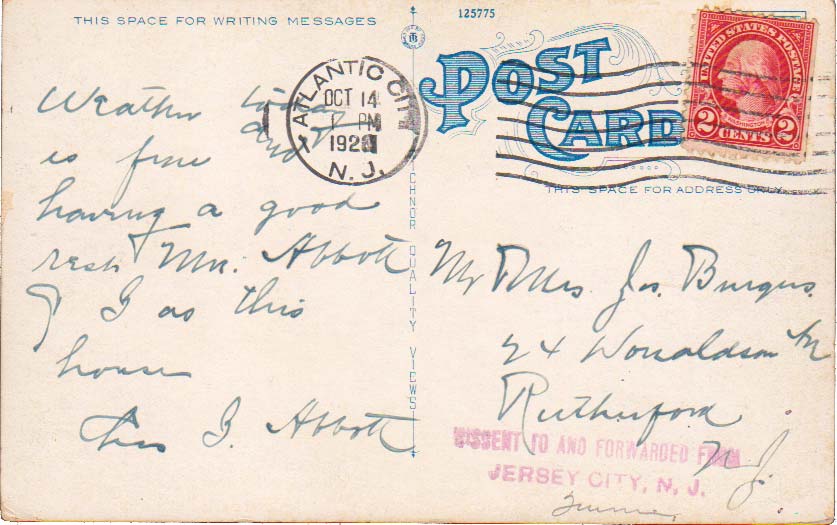 THIS SPACE FOR WRITING MESSAGES
125775
POST
CARD
UNITED STATES POSTAGE
WASHINGTON
2 CENTS 2
ATLANTIC CITY
OCT 14
1 PM
N. J.
THIS SPACE FOR ADDRESS ONLY
TICHNOR QUALITY VIEWS
Weather
is fine and
having a good
rest Mr. Abbott
& I as this
house
J. Abbott
Mr & Mrs Jos. Burgess
24 Donaldson
Rutherford
N J.
MISSENT TO AND FORWARDED FROM
JERSEY CITY, N. J.